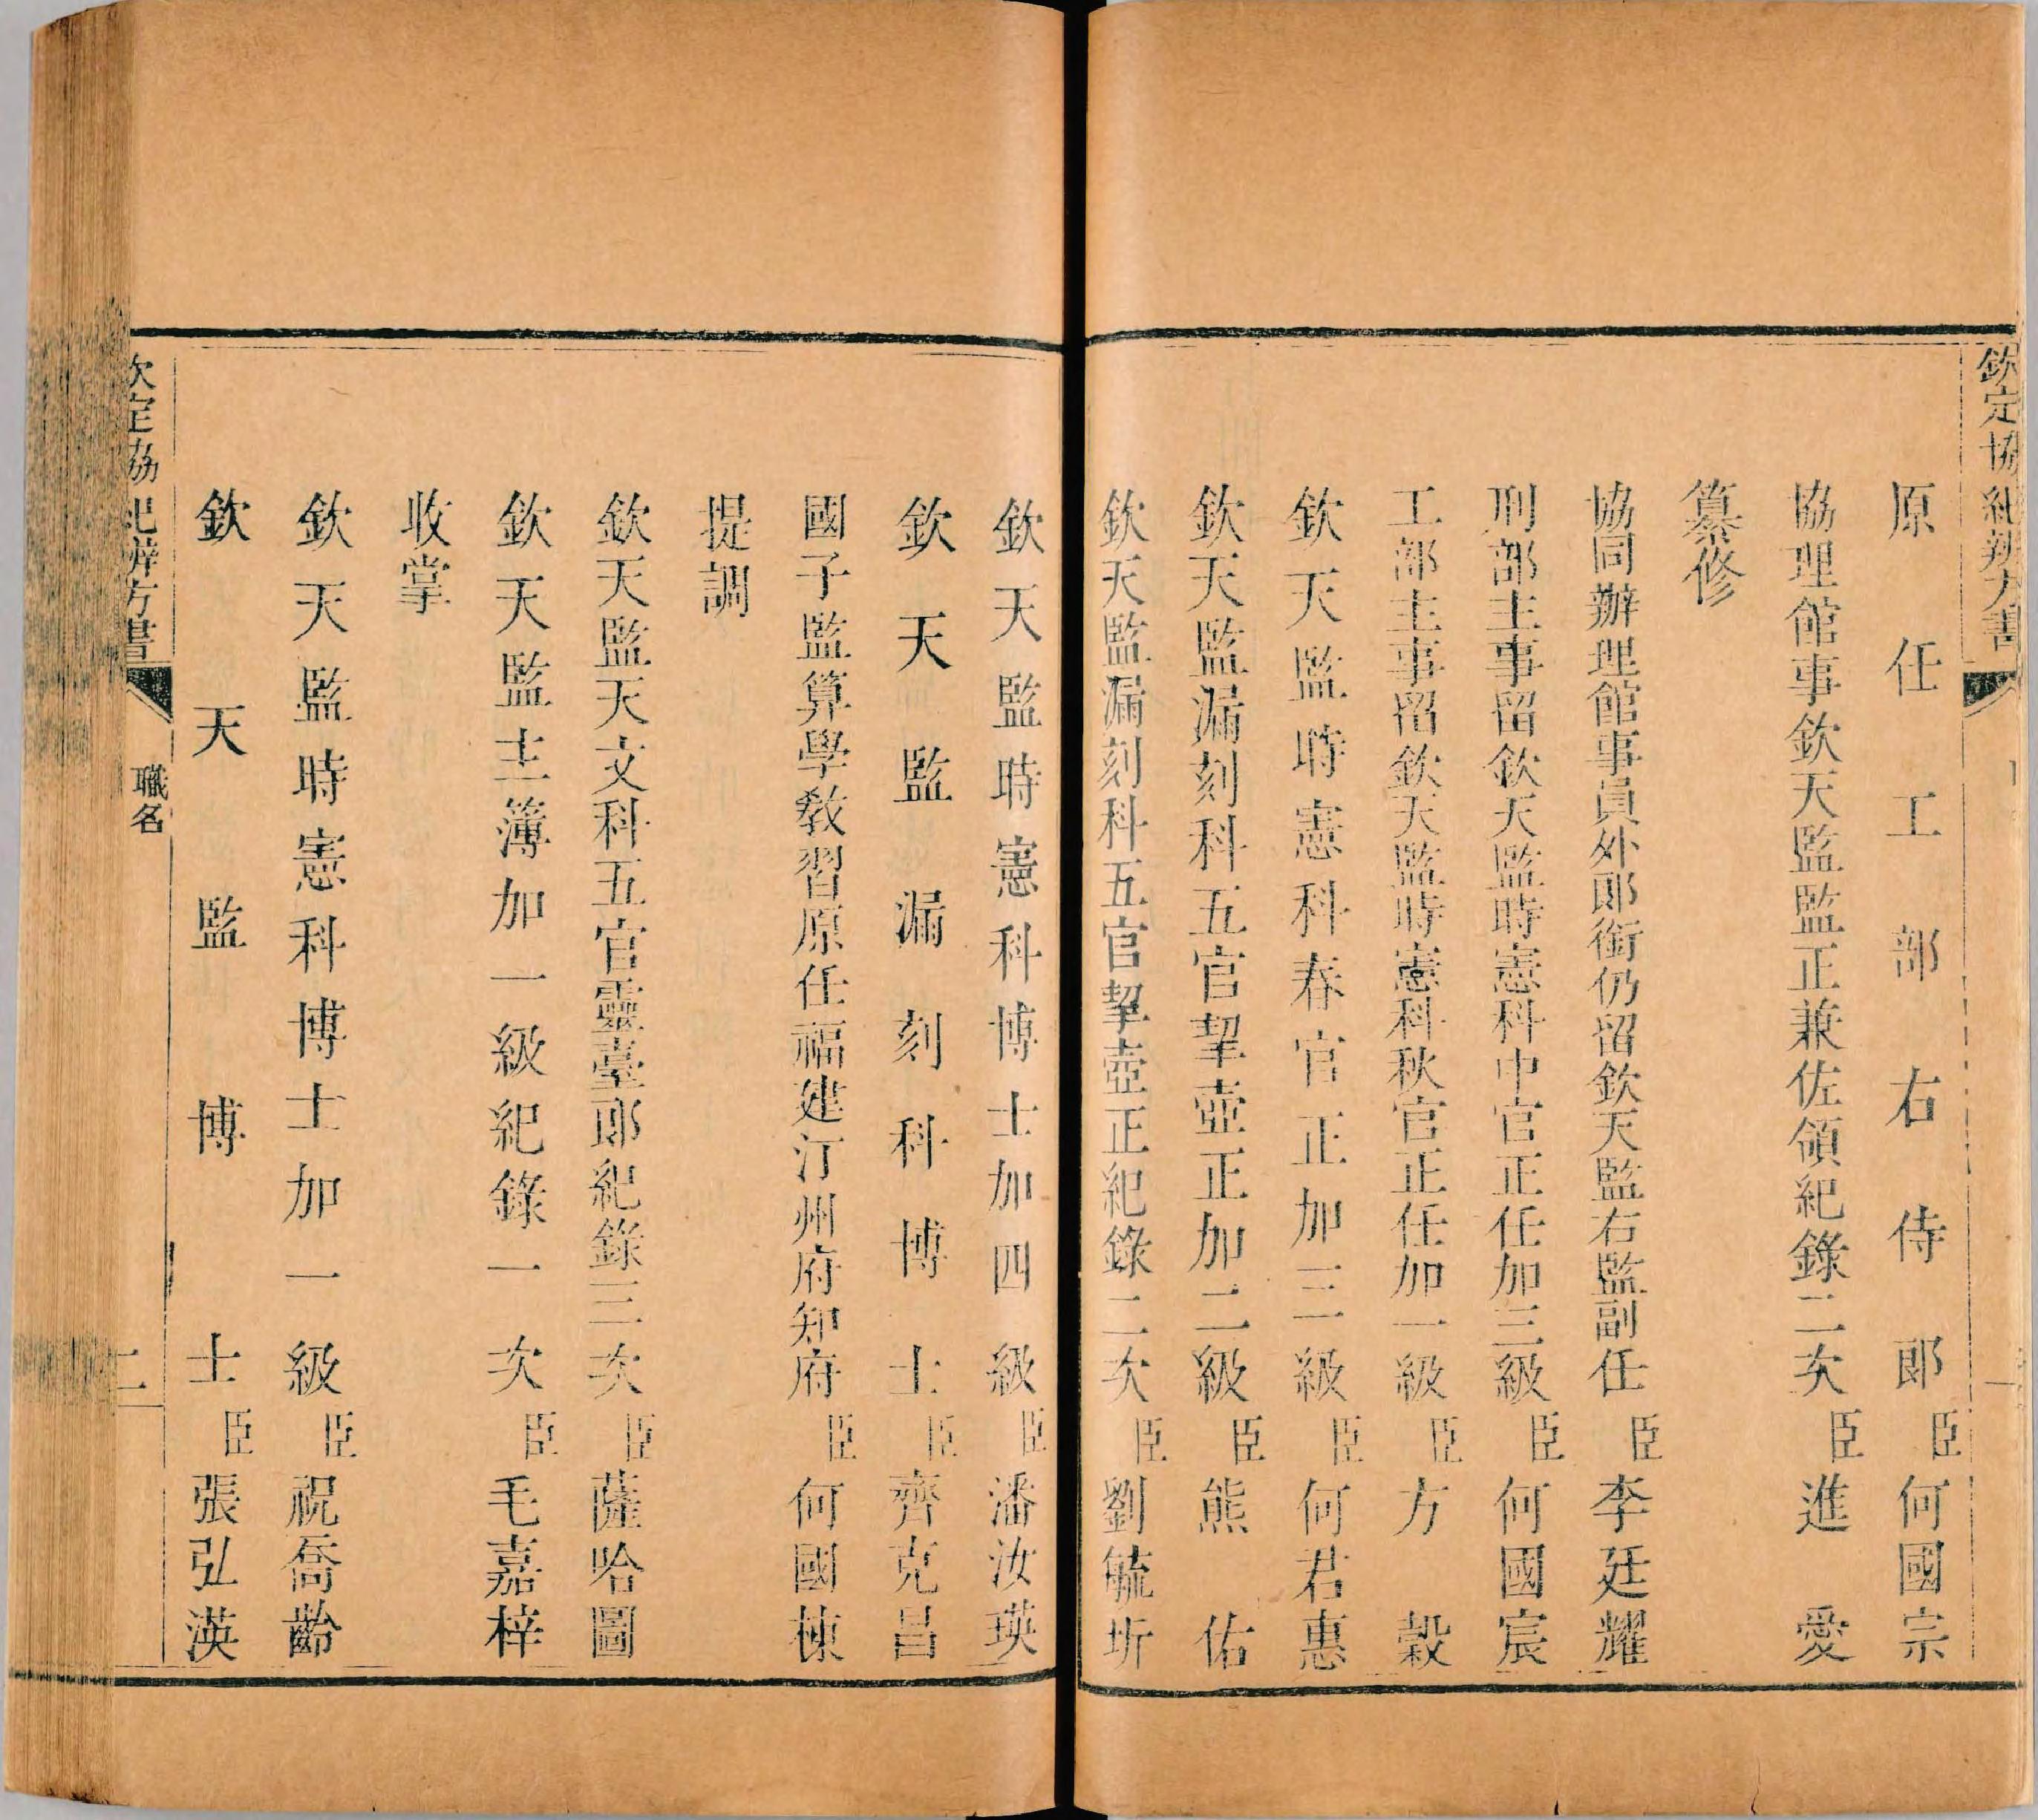 欽定協紀辨方書
原任工部右侍郎臣何國宗
協理館事欽天監監正兼佐領紀錄二次臣進愛
纂修
協同辦理館事員外郎銜仍留欽天監右監副任臣李廷耀
刑部主事留欽天監時憲科中官正任加三級臣何國宸
工部主事留欽天監時憲科秋官正任加一級臣方榖
欽天監時憲科春官正加三級臣何君惠
欽天監漏刻科五官挈壺正加二級臣熊佑
欽天監漏刻科五官挈壺正紀錄二次臣劉毓圻
欽天監時憲科博士加四級臣潘汝瑛
欽天監漏刻科博士臣齊克昌
國子監算學教習原任福建汀州府知府臣何國棟
提調
欽天監天文科五官靈臺郎紀錄三次臣薩哈圖
欽天監主簿加一級紀錄一次臣毛嘉梓
收掌
欽天監時憲科博士加一級臣祝喬齡
欽天監博士臣張弘渶
欽定協紀辨方書 職名 二